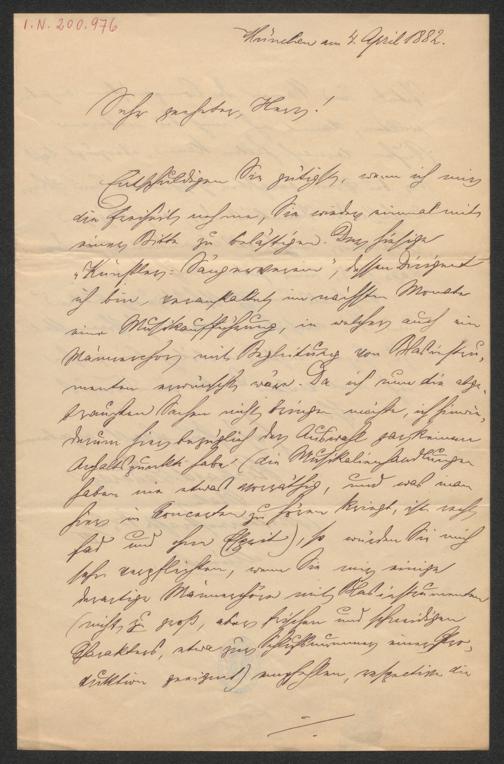 I.N. 200.976
München am 4. April 1882.
Sehr geehrter Herr!
Entschuldigen Sie gütigst, wenn ich mir
die Freiheit nehme, Sie wieder einmal mit
einer Bitte zu belästigen. Der hiesige
„Künstler-Sängerverein", dessen Dirigent
ich bin, veranstaltet im nächsten Monate
eine Musikaufführung, in welcher auch ein
Männerchor mit Begleitung von Blasinstru-
menten erwünscht wäre. Da ich nun die abge-
traugten Sachen nicht bringen möchte, ich hinwie-
derum hier bezüglich der Auswahl gar keinen
Anhaltspunkt habe (die Musikalienhandlungen
haben nie etwas vorräthig, und was man
hier in Concerten zu hören kriegt, ist recht
fad und ohne Esprit), so würden Sie mich
sehr verpflichten, wenn Sie mir einige
derartige Männerchöre mit Blasinstrumenten
(nicht zu groß, aber frischen und schneidigen
Charakters, etwa zur Schlußnummer einer Pro-
duktion geeignet) empfehlen, respective die